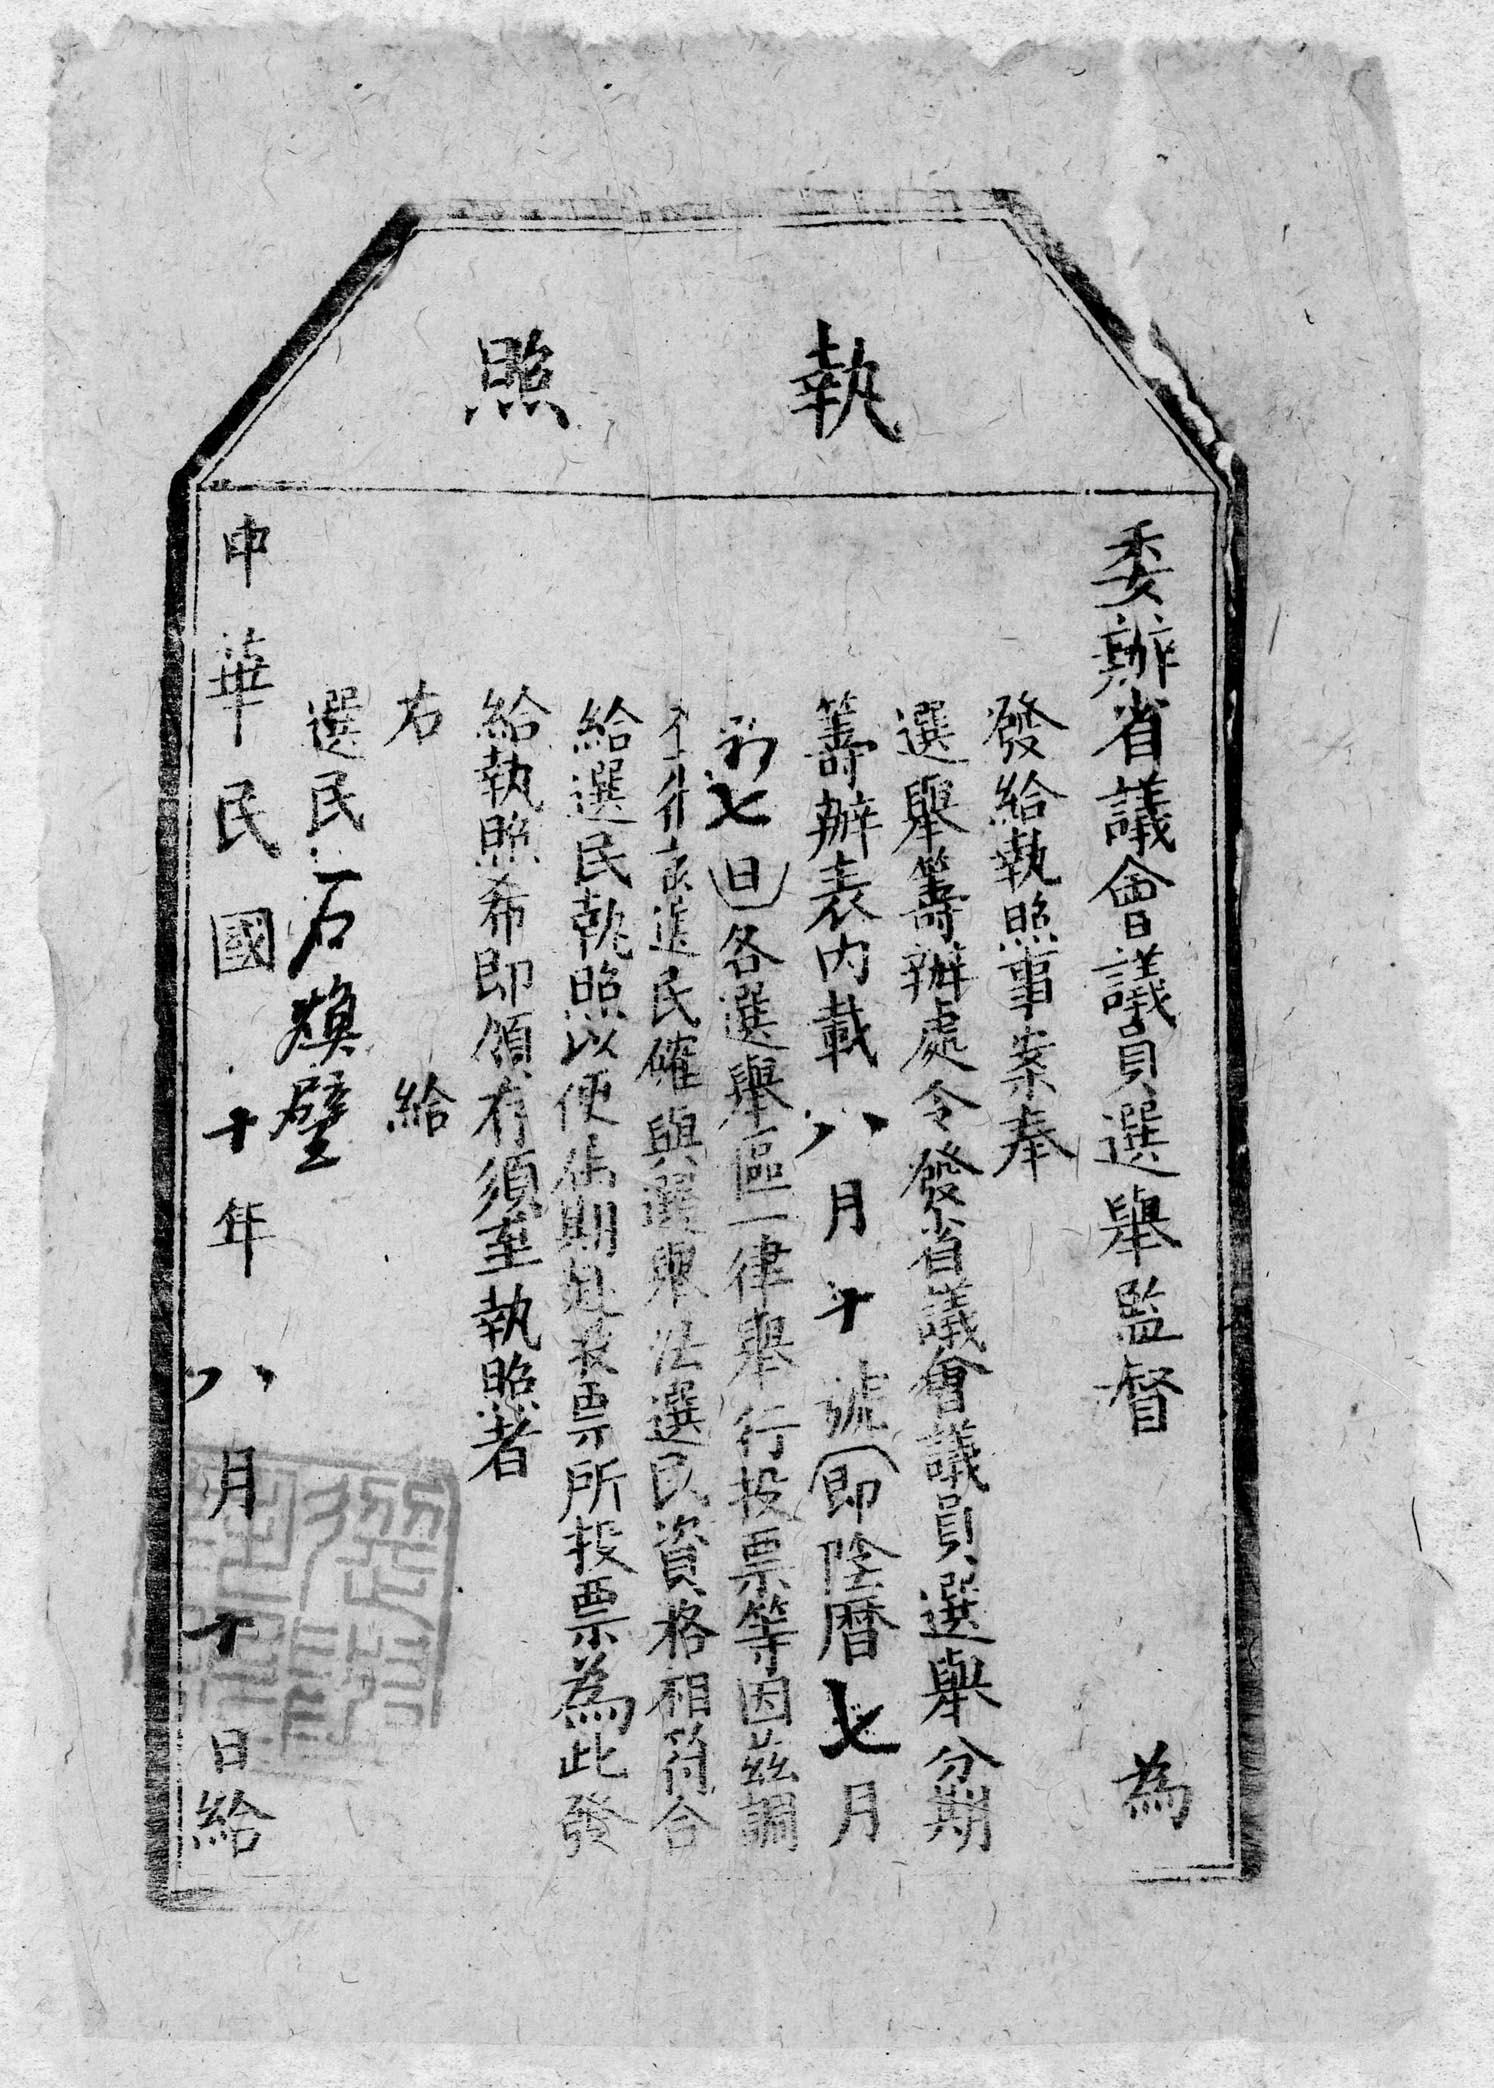 執照
委辦省議會議員選舉監督 為
發給執照事案奉
選舉籌辦處令發省議會議員選舉分期
籌辦表內載八月十號(即陰曆七月
初七日)各選舉區一律舉行投票等因茲調
民確與選舉法選民資格相符合
給選民執照以便屆期赴投票所投票為此發
給執照希即領存須至執照者
右給
選民石煥璧
中華民國十年八月十日給